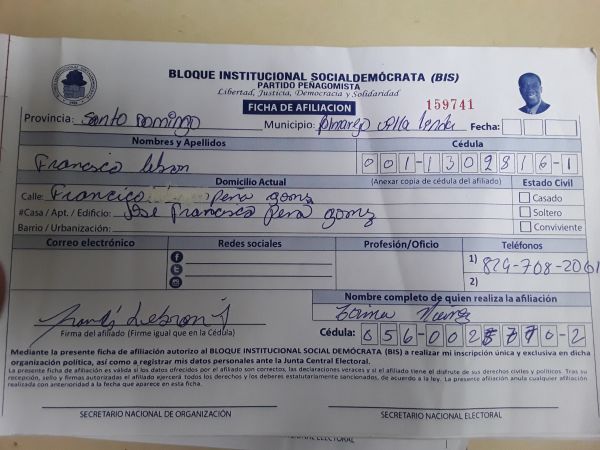 BLOQUE INSTITUCIONAL SOCIALDEMÓCRATA (BIS)
PARTIDO PENAGOMISTA
Libertad, Justicia, Democracia y Solidaridad
FICHA DE AFILIACION
159741
Provincia: Santo Domingo Municipio: Villa Fecha:
Nombres y Apellidos Cédula
Francisco lebron 001-1302816-1
Domicilio Actual (Anexar copia de cédula del afiliado) Estado Civil
Calle: Francico peña gomz Casado
#Casa / Apt. / Edificio: Jose Francisco Pena gomz Soltero
Barrio / Urbanización: Conviviente
Correo electrónico Redes sociales Profesión/Oficio Teléfonos
1) 829-708-2061
2)
Nombre completo de quien realiza la afiliación
Firma del afiliado (Firme igual que en la Cédula)
Cédula: 056-002 770-2
Mediante la presente ficha de afiliación autorizo al BLOQUE INSTITUCIONAL SOCIAL DEMÓCRATA (BIS) a realizar mi inscripción única y exclusiva en dicha
organización política, así como a registrar mis datos personales ante la Junta Central Electoral.
La presente ficha de afiliación es válida si los datos ofrecidos por el afiliado son correctos, las declaraciones veraces y si el afiliado tiene el disfrute de sus derechos civiles y políticos. Tras su
recepción, sello y firmas autorizadas el afiliado ejercerá todos los derechos y los deberes estatutariamente sancionados, de acuerdo a la ley. La presente afiliación anula cualquier afiliación
realizada con anterioridad a la fecha que aparece en esta ficha.
SECRETARIO NACIONAL DE ORGANIZACIÓN SECRETARIO NACIONAL ELECTORAL